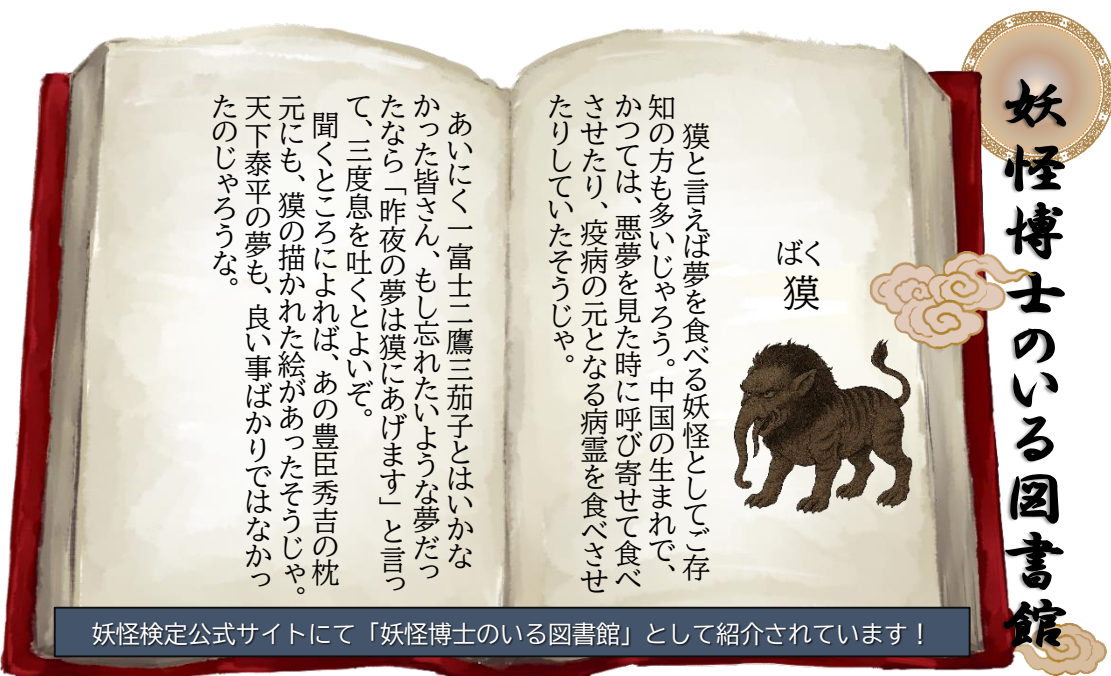 妖怪博士のいる図書館
ばく
獏
獏と言えば夢を食べる妖怪としてご存
知の方も多いじゃろう。中国の生まれで、
かつては、悪夢を見た時に呼び寄せて食べ
させたり、疫病の元となる病霊を食べさせ
たりしていたそうじゃ。
あいにく一富士二鷹三茄子とはいかな
かった皆さん、もし忘れたいような夢だっ
たなら「昨夜の夢は獏にあげます」と言っ
て、三度息を吐くとよいぞ。
聞くところによれば、あの豊臣秀吉の枕
元にも、獏の描かれた絵があったそうじゃ。
天下泰平の夢も、良い事ばかりではなかっ
たのじゃろうな。
妖怪検定公式サイトにて「妖怪博士のいる図書館」として紹介されています！